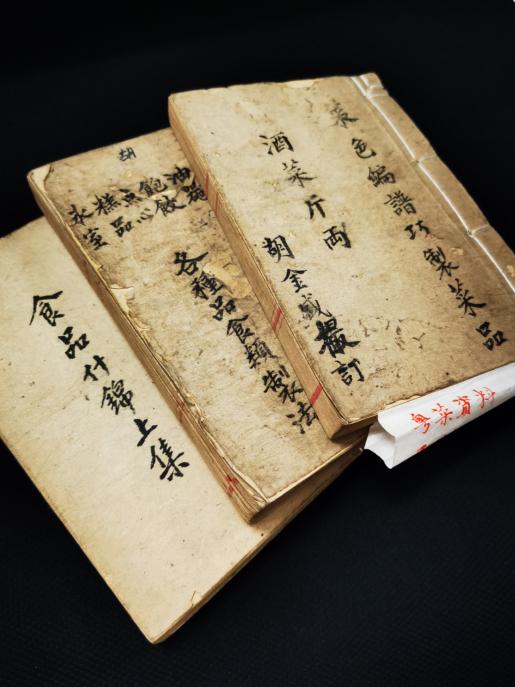 菜色編譜巧製菜品
酒菜斤両
胡金盛 訂
粵菜資料
胡
油器
飽餃
点心
糕品
氷室
各種品食類製法
食品什錦上集